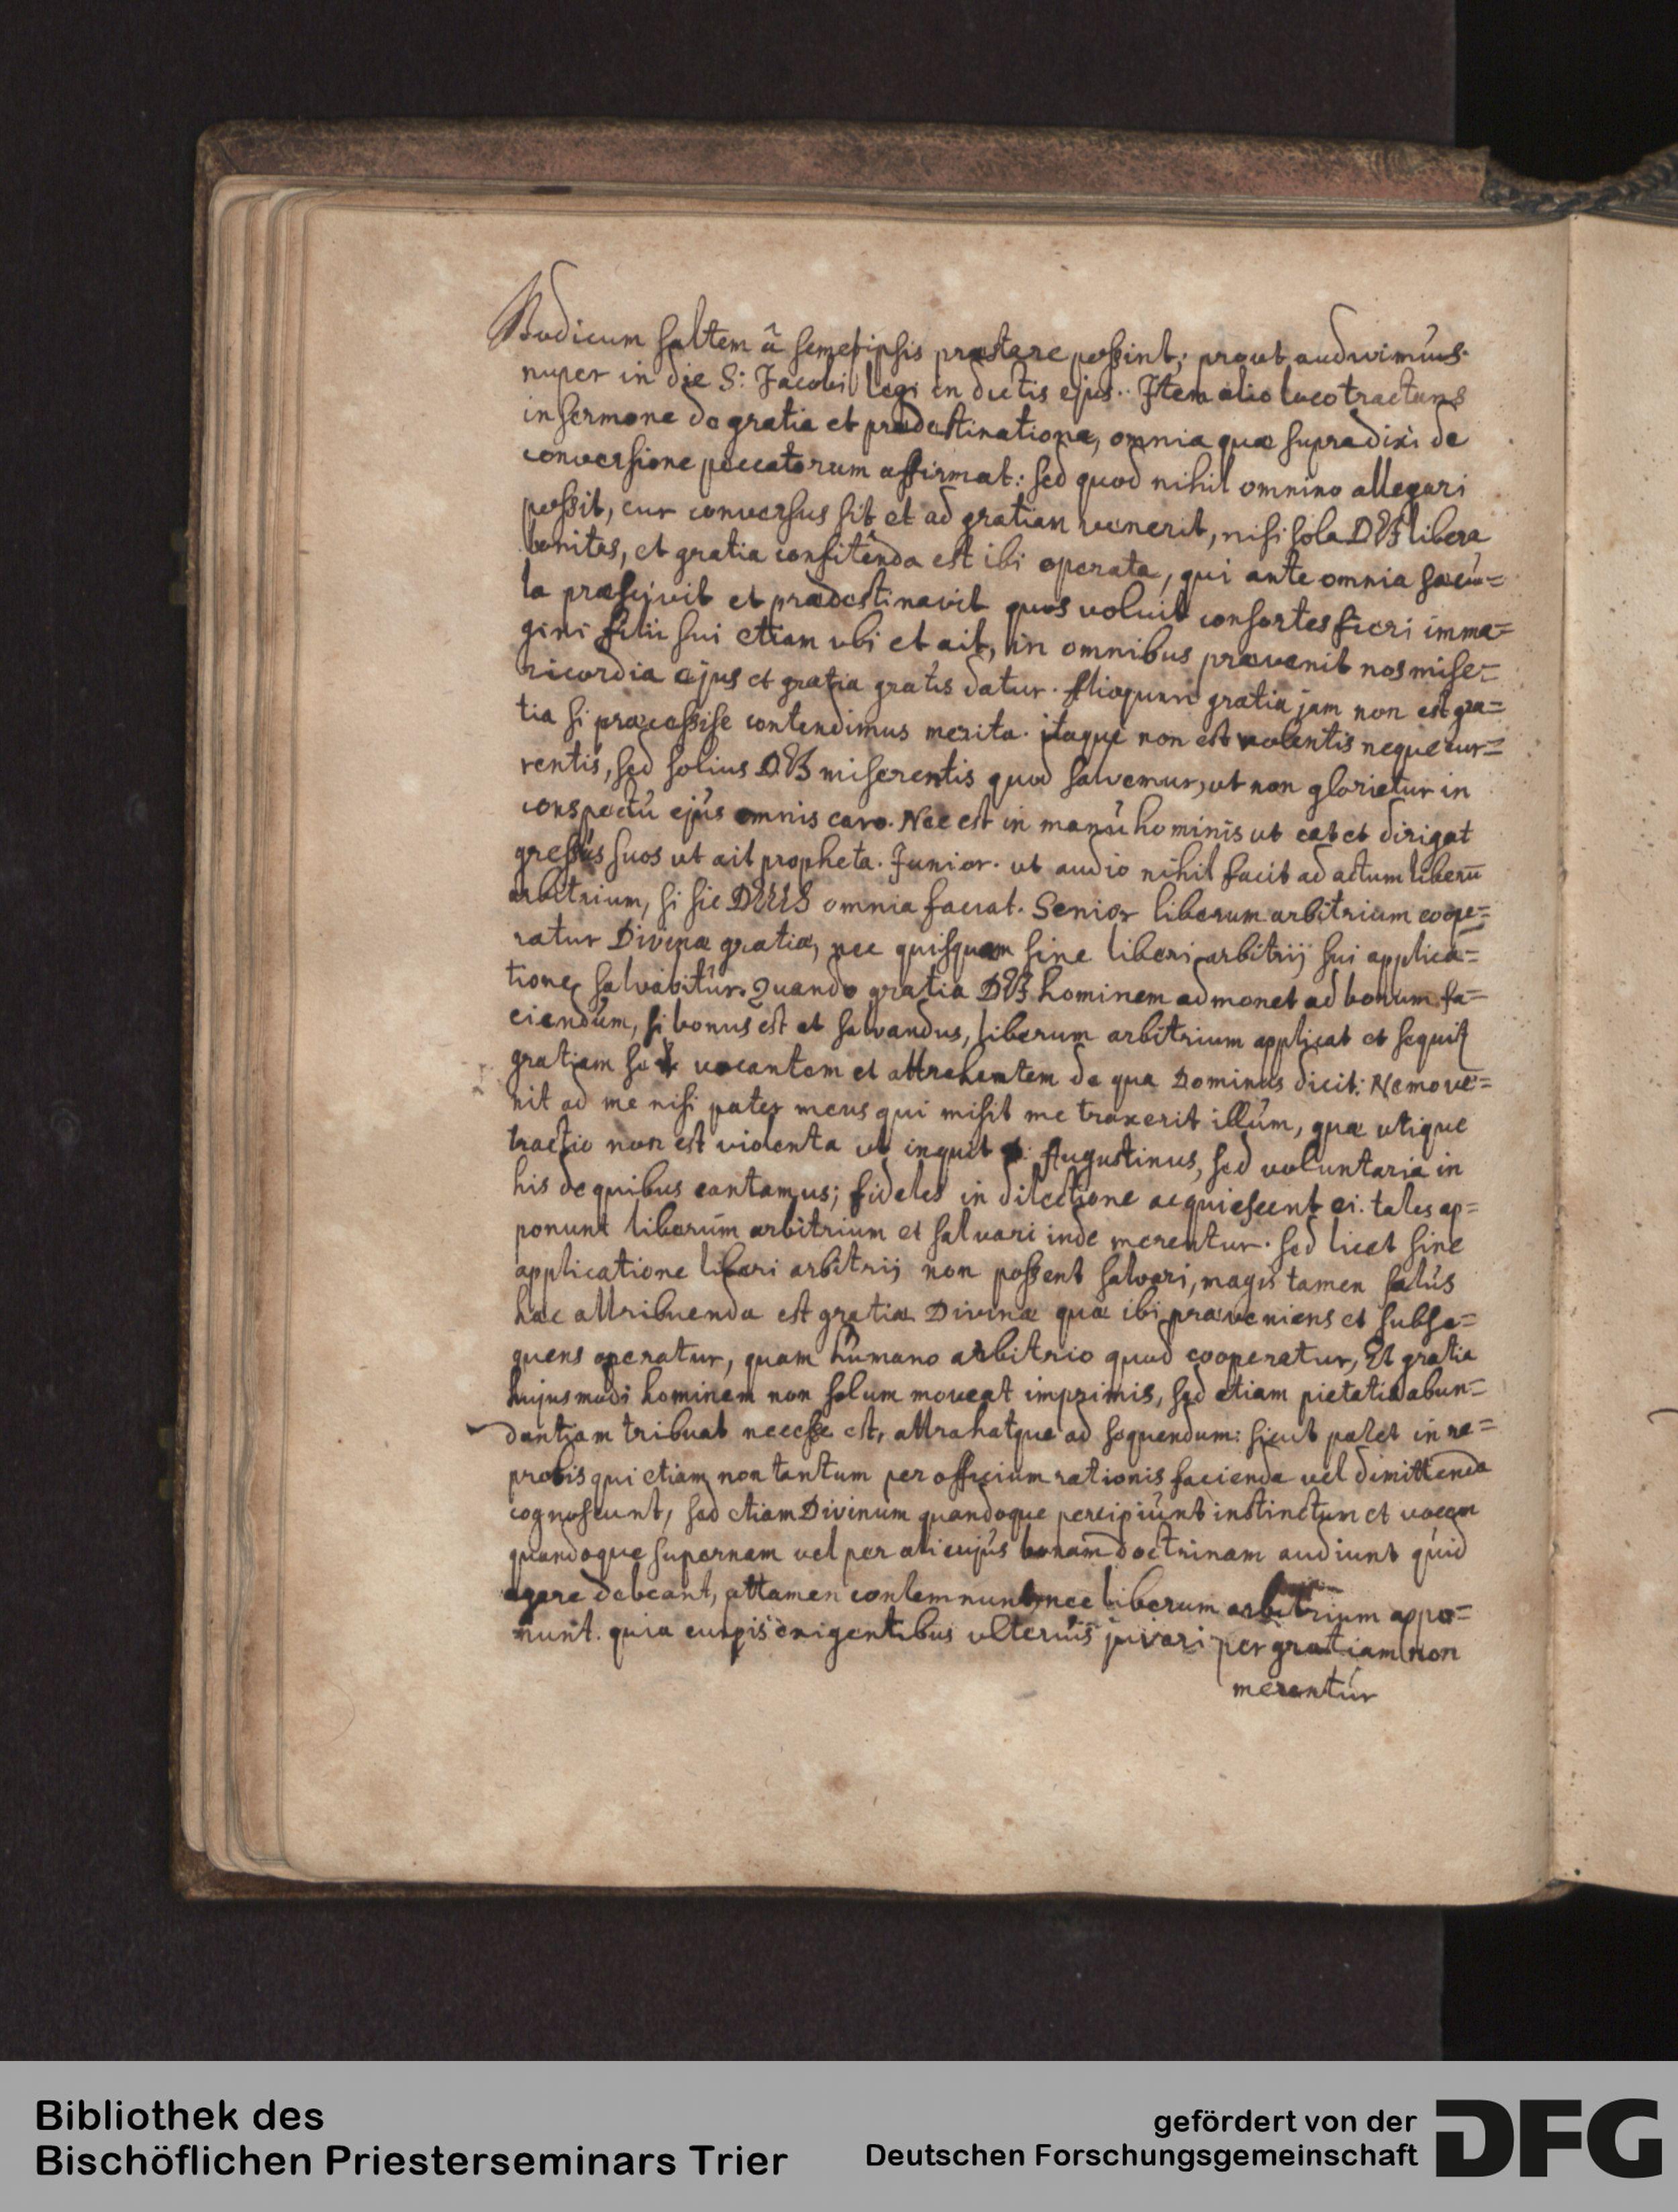 Modicum saltem â semetipsis præstare possint; prout audivimus
nuper in die S: Jacobi legi in dictis ejus. Item alio loco tractans
in sermone de gratia et prædestinatione, omnia quæ supradixi de
conversione peccatorum affirmat: sed quod nihil omnino allegari
possit, cur conversus sit et ad gratiam venerit, nisi sola DEI libera
bonitas, et gratia confitenda est ibi operata, qui ante omnia sæcu=
la præscivit et prædestinavit quos voluit consortes fieri ima=
gini filii sui etiam ubi et ait, in omnibus prævenit nos mise=
ricordia ejus et gratia gratis datur. Alioquin gratia jam non est gra=
tia si præcessisse contendimus merita. itaque non est volentis neque cur=
rentis, sed solius DEI miserentis quod salvemur, ut non glorietur in
conspectu ejus omnis caro. Nec est in manu hominis ut eat et dirigat
gressus suos ut ait propheta. Junior. ut audio nihil facit ad actum liberū
arbitrium, si sic DEUS omnia faciat. Senior liberum arbitrium coope=
ratur Divinæ gratiæ, nec quisquam sine liberi arbitrij sui applica=
tione salvabitur. Quando gratia DEI hominem admonet ad bonum fa=
ciendum, si bonus est et salvandus, liberum arbitrium applicat et sequit
gratiam se vocantem et attrahentem de qua Dominus dicit: Nemo ve=
nit ad me nisi pater meus qui misit me traxerit illum, quæ utique
tractio non est violenta ut inquit Augustinus, sed voluntaria in
his de quibus cantamus; fideles in dilectione acquiescent ei. tales ap=
ponunt liberum arbitrium et salvari inde merentur. sed licet sine
applicatione liberi arbitrij non possent salvari, magis tamen salus
hæc attribuenda est gratiæ Divinæ quæ ibi præveniens et subse=
quens operatur, quam humano arbitrio quod cooperatur, Et gratia
hujusmodi hominem non solum moveat imprimis, sed etiam pietatis abun=
dantiam tribuat necesse est, attrahatque ad sequendum: sicut patet in re=
probis qui etiam non tantum per officium rationis facienda vel dimittenda
cognoscunt, sed etiam Divinum quandoque percipiunt instinctum et vocem
quandoque supernam vel per alicujus bonam doctrinam audiunt quid
agere debeant, attamen contemnunt nec liberum arbitrium appo=
nunt. quia culpis exigentibus ulterius juvari per gratiam non
merentur
Bibliothek des
Bischöflichen Priesterseminars Trier
gefördert von der
Deutschen Forschungsgemeinschaft
DFG